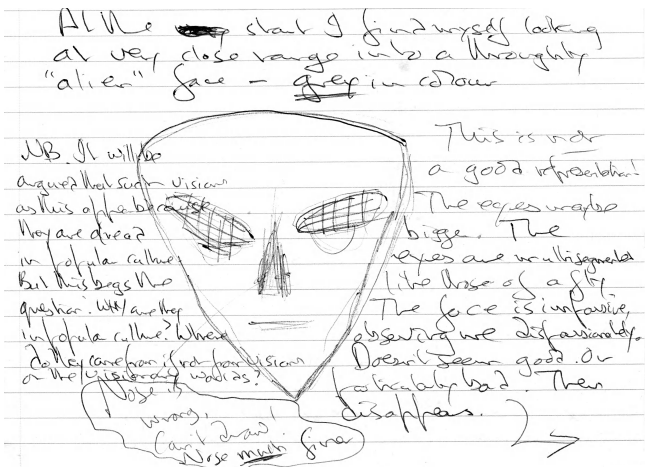 At the start I find myself looking
at very close range into a throughly
"alien" face – grey in colour
NB. It will be
argued that such visions
as this appear because
they are already
in popular culture.
But this begs the
question: Why are they
in popular culture? Where
do they come from if not from visions
or the visionary worlds?
This is not
a good representation!
The eyes maybe
bigger. The
eyes are multisegmented
like those of a fly
The face is impassive,
observing me dispassionately.
Doesn't seem good. Or
particularly bad. Then
disappears.
Nose is
wrong,
Can't draw!
Nose much finer